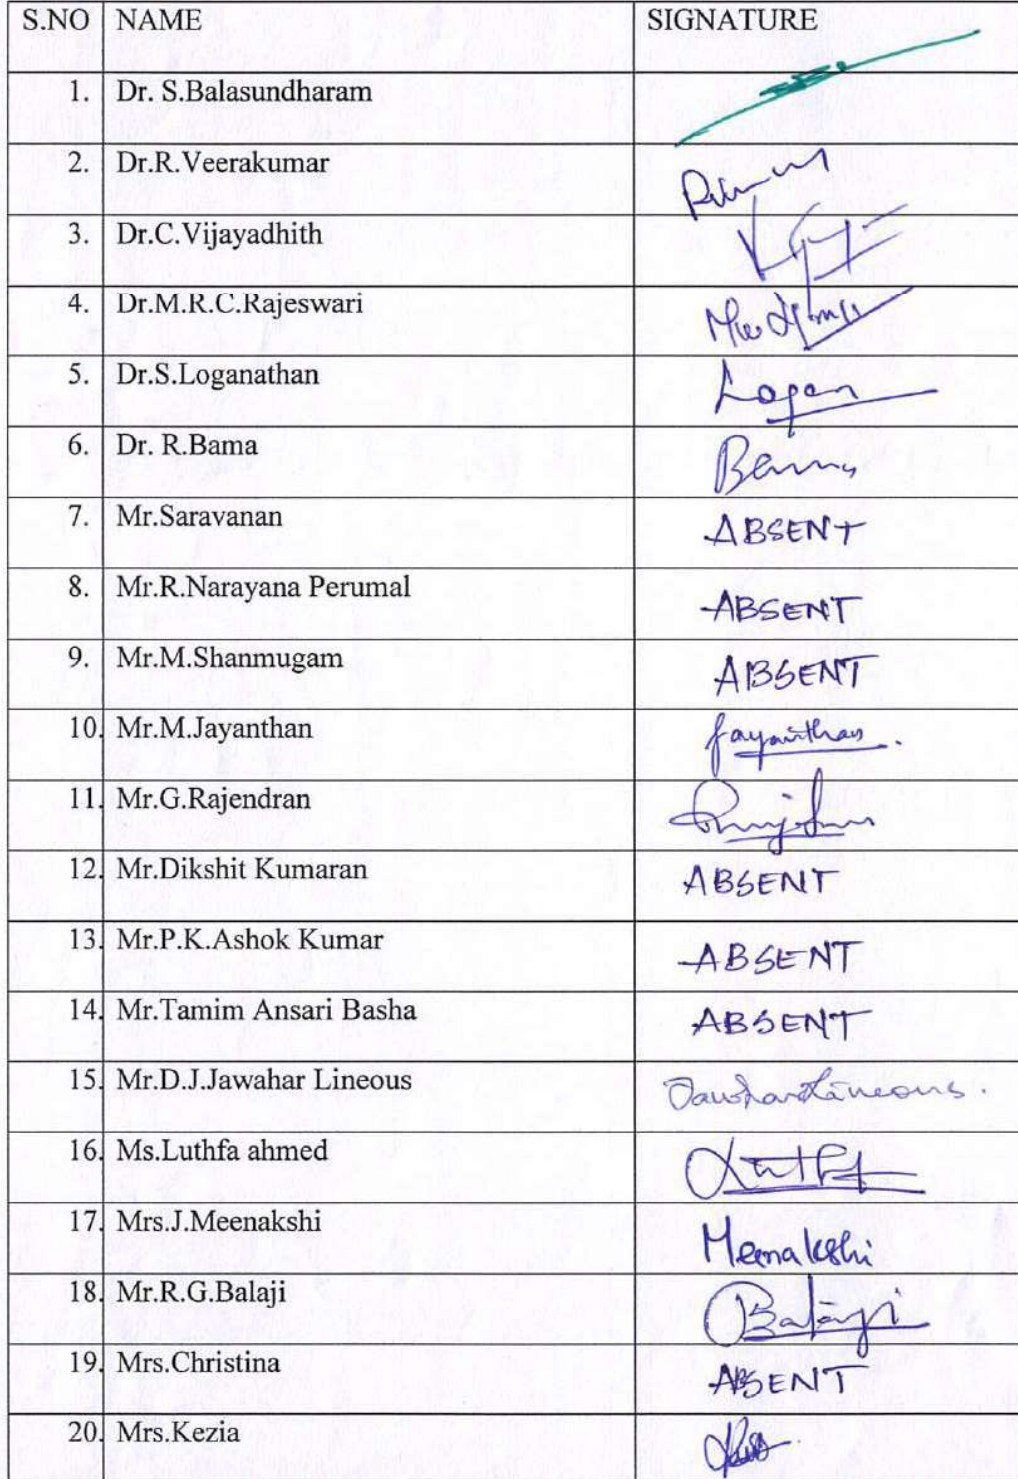 S.NO NAME SIGNATURE
1. Dr. S.Balasundharam
2. Dr.R.Veerakumar
3. Dr.C.Vijayadhith
4. Dr.M.R.C.Rajeswari
5. Dr.S.Loganathan Logan
6. Dr. R.Bama Bama
7. Mr.Saravanan ABSENT
8. Mr.R.Narayana Perumal ABSENT
9. Mr.M.Shanmugam ABSENT
10. Mr.M.Jayanthan Jayanthan.
11. Mr.G.Rajendran
12. Mr.Dikshit Kumaran ABSENT
13. Mr.P.K.Ashok Kumar ABSENT
14. Mr.Tamim Ansari Basha ABSENT
15. Mr.D.J.Jawahar Lineous JawaharLineous.
16. Ms.Luthfa ahmed
17. Mrs.J.Meenakshi Meenakshi
18. Mr.R.G.Balaji Balaji
19. Mrs.Christina ABSENT
20. Mrs.Kezia